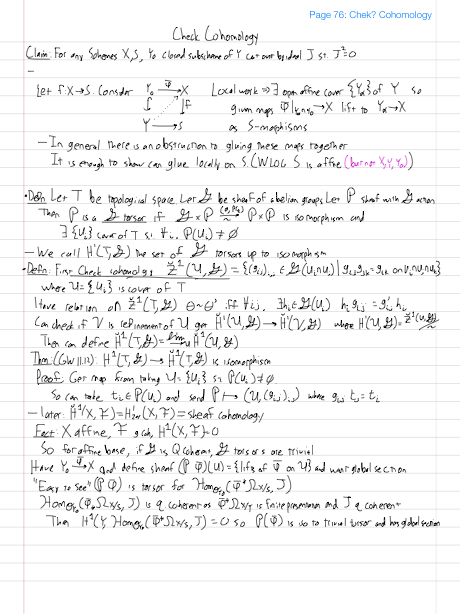 Page 76: Chek? Cohomology
Check Cohomology
Claim: For any Schemes X,S, Y₀ closed subscheme of Y cut out by ideal J st. J²=0
–
Let f:X→S. Consider Y₀ →^φ̄ X Local work ⇒ ∃ open affine cover {Yₐ} of Y so
given maps φ̄|Yₐ∩Y₀→X lift to Yₐ→X
Y → S as S-morphisms
– In general there is an obstruction to gluing these maps together
It is enough to show can glue locally on S. (WLOG S is affine (but not X, Y, Y₀))
• Defn: Let T be topological space. Let 𝒢 be sheaf of abelian groups. Let P sheaf with 𝒢 action
Then P is a 𝒢 torsor if 𝒢×P (p,pg) P×P is isomorphism and
∃ {Uᵢ} cover of T s.t. ∀i, P(Uᵢ) ≠ ∅
– We call H¹(T,𝒢) the set of 𝒢 torsors up to isomorphism
• Defn: First Check cohomology Ž¹(U,𝒢) = {(gᵢⱼ)ᵢ,ⱼ ∈ 𝒢(Uᵢ∩Uⱼ) | gᵢⱼgⱼₖ=gᵢₖ on Uᵢ∩Uⱼ∩Uₖ}
where U={Uᵢ} is cover of T
Have relation on Ž¹(T,𝒢) θ~θ' iff ∀i,j, ∃hᵢ∈𝒢(Uᵢ) hᵢgᵢⱼ=g'ᵢⱼhⱼ
Can check if V is refinement of U get Ȟ¹(U,𝒢)→Ȟ¹(V,𝒢) where Ȟ¹(U,𝒢)=Ž¹(U,𝒢)/~
Then can define Ȟ¹(T,𝒢)=lim Ȟ¹(U,𝒢)
Thm: (GW 11.12): H¹(T,𝒢)→Ȟ¹(T,𝒢) is isomorphism
Proof: Get map from taking U={Uᵢ} s.t. P(Uᵢ)≠∅.
So can take tᵢ∈P(Uᵢ) and send P↦(U,(gᵢⱼ)ᵢ,ⱼ) where gᵢⱼtⱼ=tᵢ
– later: Ȟ¹(X,F)=H¹(X,F)=sheaf cohomology
Fact: X affine, F q coh, H¹(X,F)=0
So for affine base, if 𝒢 is Q coherent, 𝒢 torsors are trivial
Have Y₀→^φ̄ X and define sheaf (Pφ̄)(U)={lifts of φ̄ on U} and want global section
"Easy to See" (Pφ̄) is torsor for Hom(φ̄*Ω_X/S, J)
Hom(φ̄*Ω_X/S, J) is q. coherent as φ̄*Ω_X/Y is finite presentation and J q coherent
Then H¹(Y, Hom(φ̄*Ω_X/S, J)=0 so P(φ̄) is iso to trivial torsor and has global section